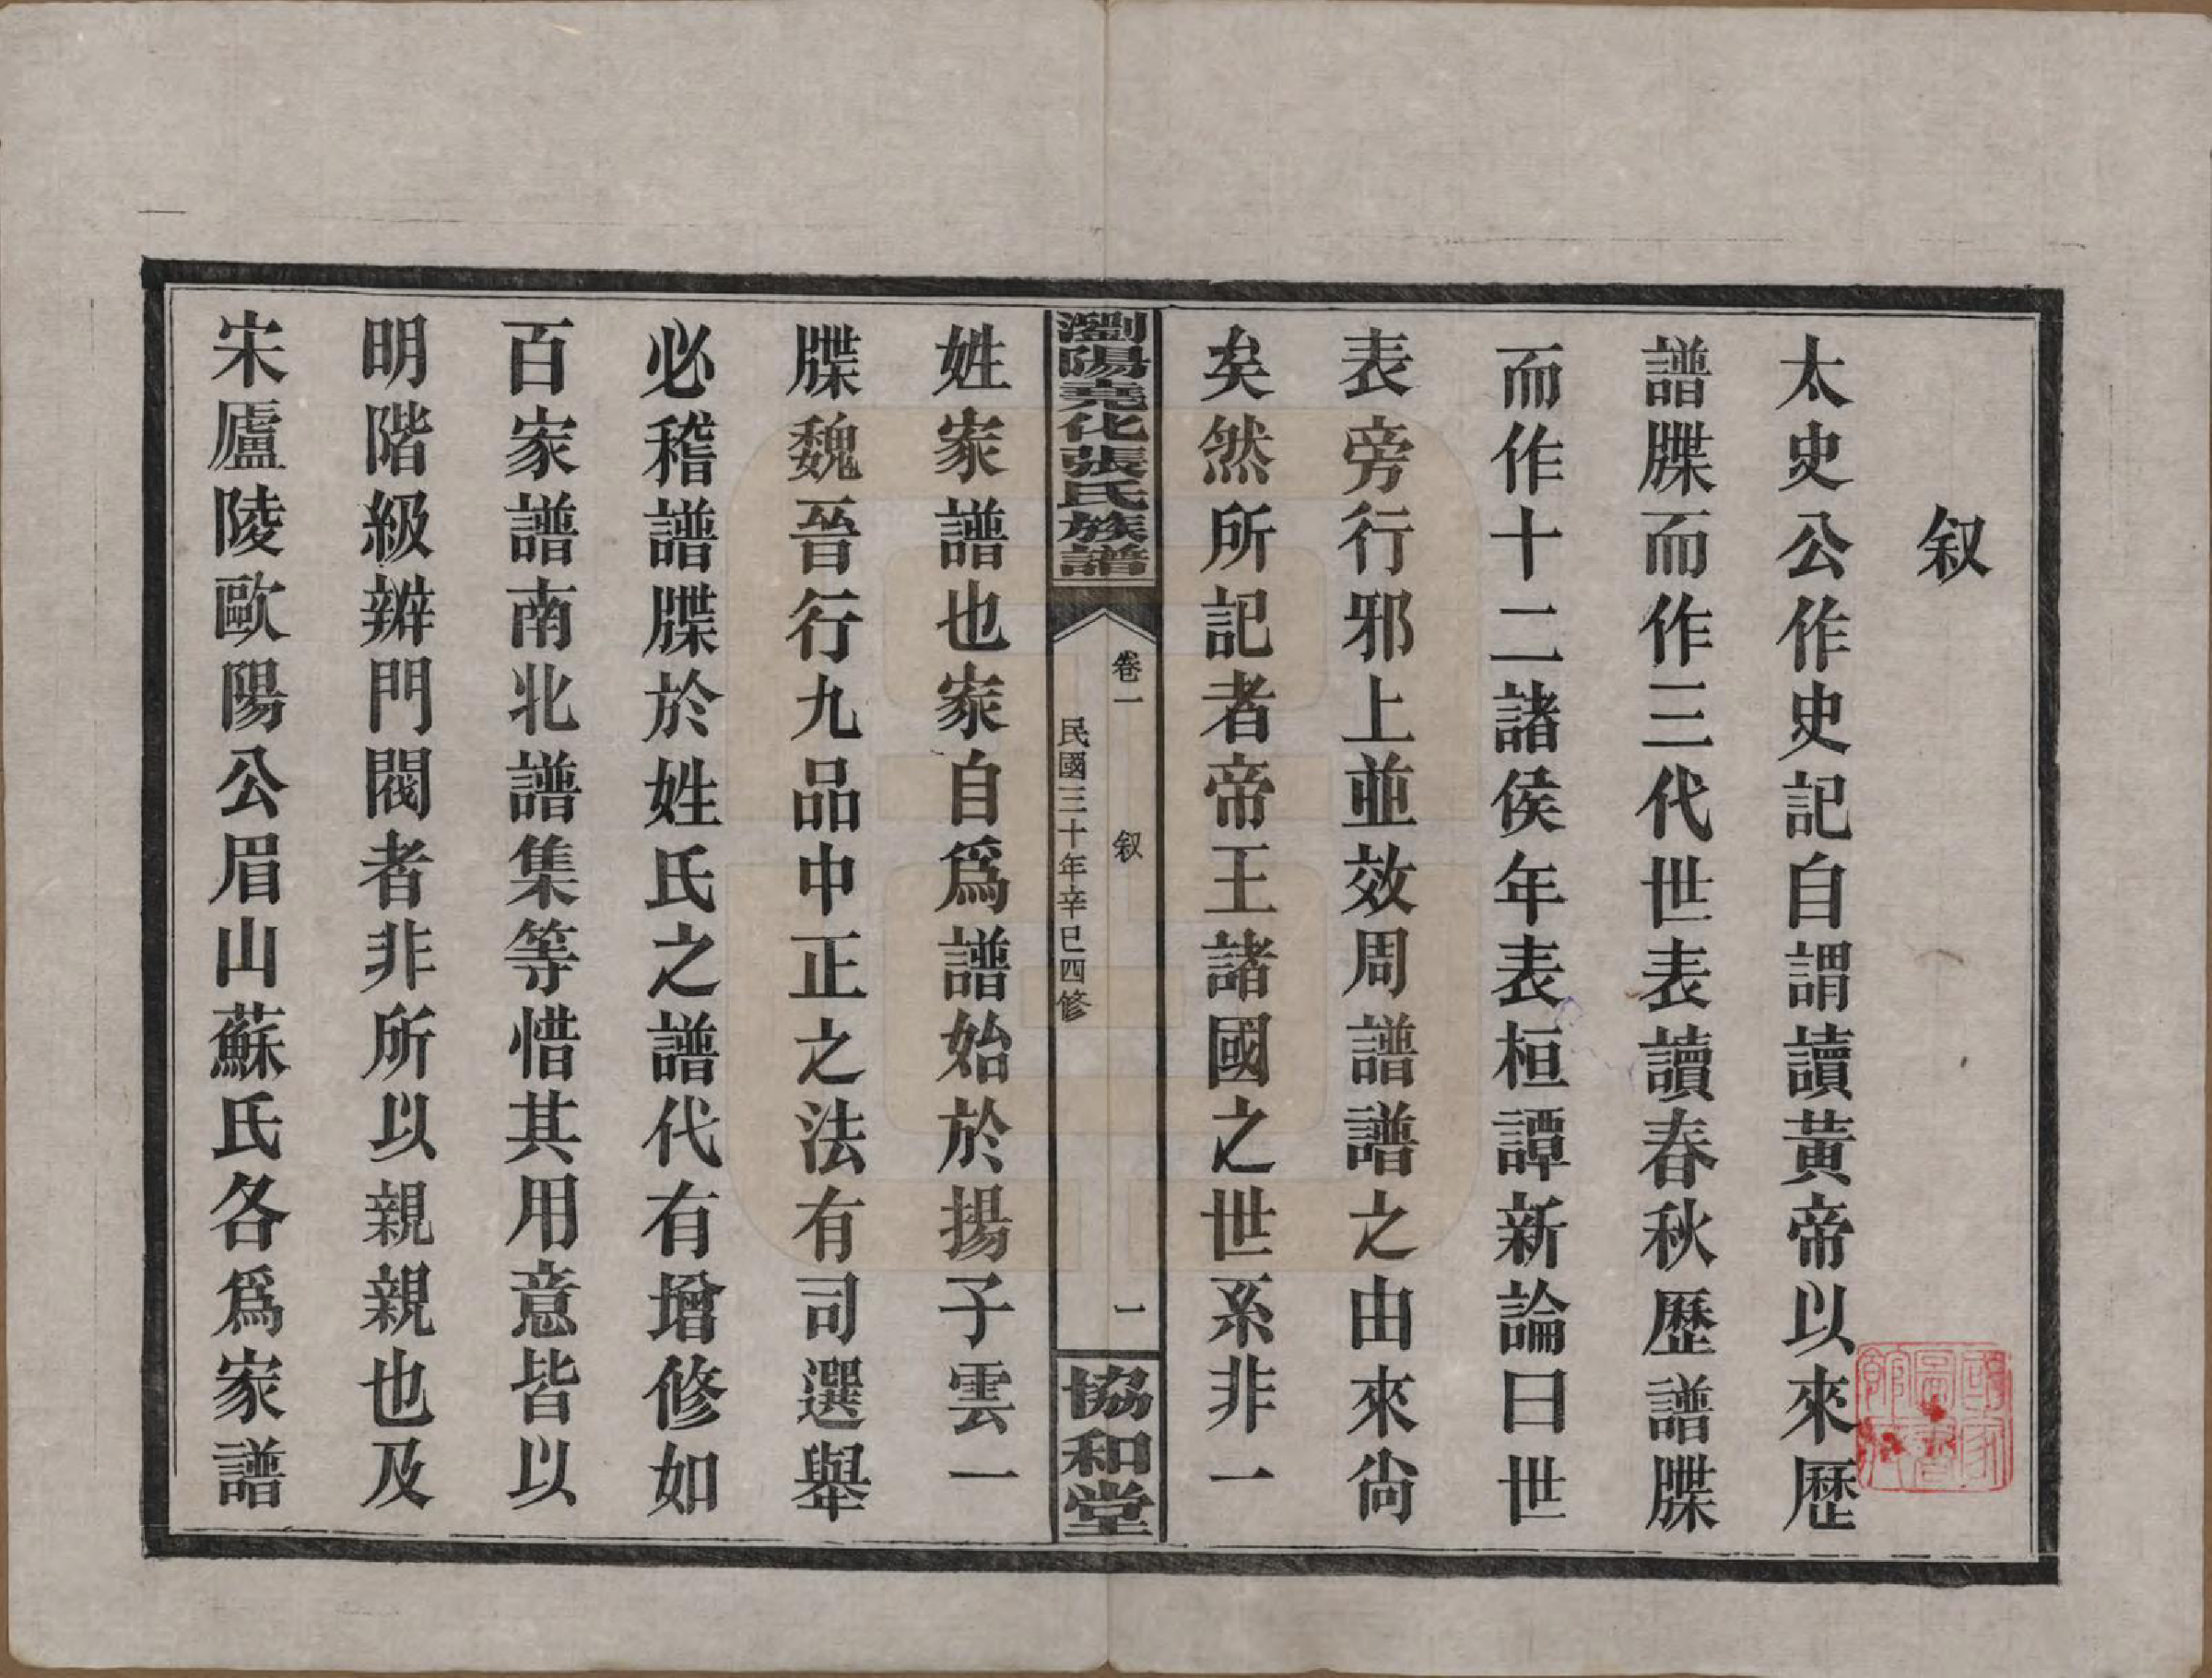 叙
太史公作史記自謂讀黃帝以來歷
譜牒而作三代世表讀春秋歷譜牒
而作十二諸侯年表桓譚新論曰世
表旁行邪上並效周譜譜之由來尙
矣然所記者帝王諸國之世系非一
瀏陽堯化張氏族譜
卷一
叙
一
民國三十年辛巳四修
協和堂
姓家譜也家自爲譜始於揚子雲一
牒魏晉行九品中正之法有司選舉
必稽譜牒於姓氏之譜代有增修如
百家譜南北譜集等惜其用意皆以
明階級辨門閥者非所以親親也及
宋廬陵歐陽公眉山蘇氏各爲家譜
國家
圖書
館藏